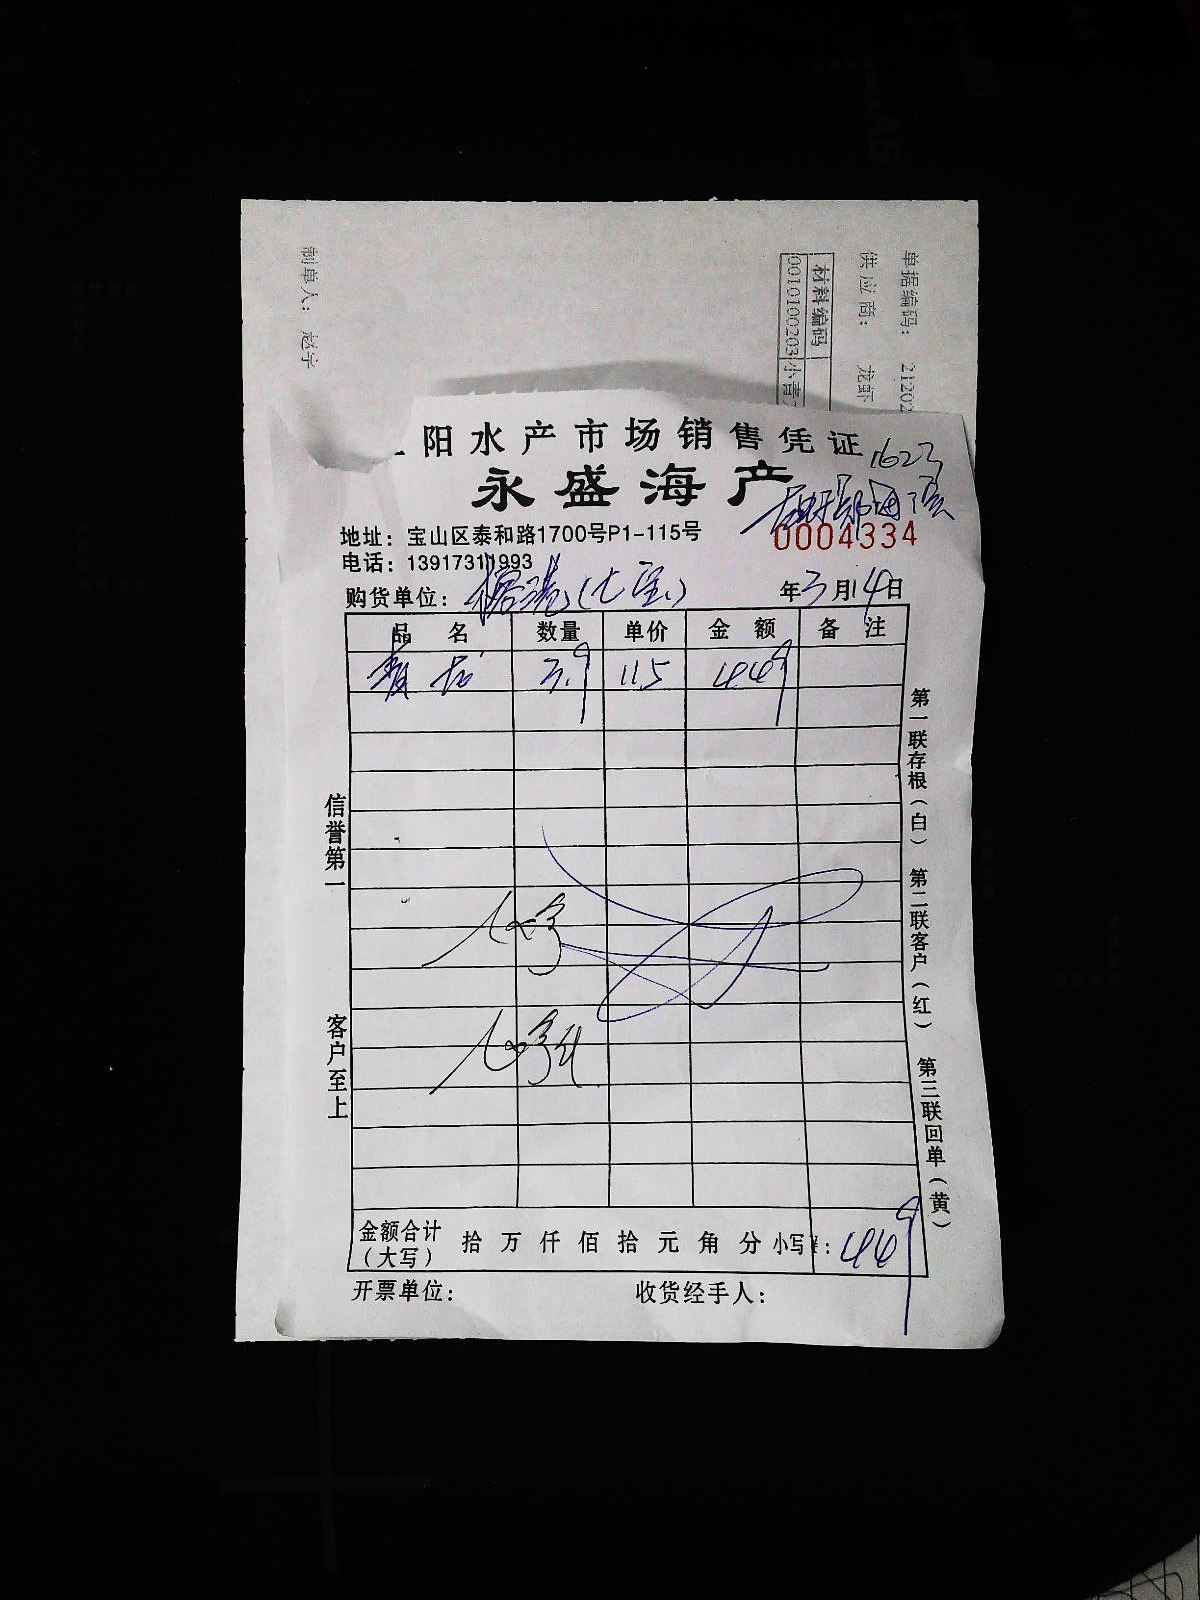 制单人: 赵宇
单据编码: 21202
供应商: 龙虾
材料编码
0010100203 小青
阳水产市场销售凭证
永盛海产
地址：宝山区泰和路1700号P1-115号
0004334
电话：13917311993
购货单位： (七宝) 年3月14日
品名 数量 单价 金额 备注
青龙 3.9 115 449
信誉第一
客户至上
第一联存根(白) 第二联客户(红) 第三联回单(黄)
金额合计(大写) 拾万仟佰拾元角分 小写: 449
开票单位： 收货经手人：